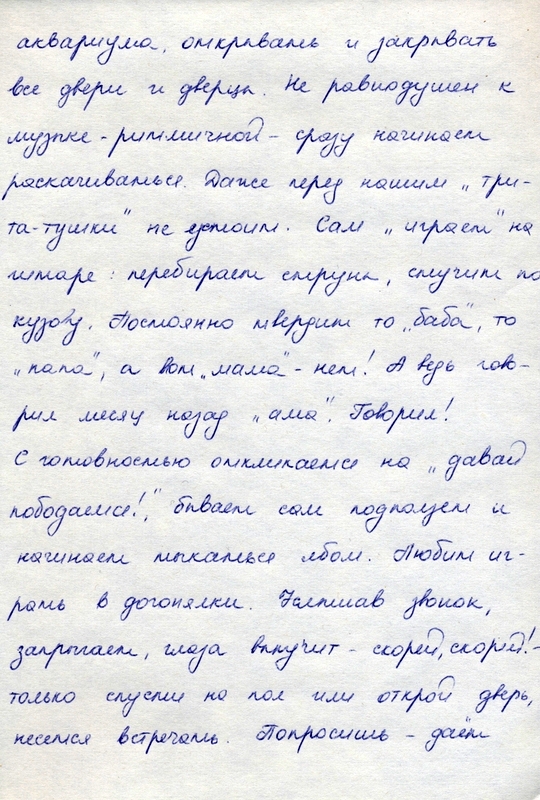 аквариума, открывать и закрывать
все двери и дверцы. Не равнодушен к
музыке - ритмичной - сразу начинает
раскачиваться. Даже перед нашим „три-
та-тушки" не устоит. Сам „играет" на
гитаре: перебирает струны, стучит по
кузову. Постоянно твердит то „баба", то
„папа", а вот „мама" - нет! А ведь гово-
рил месяц назад „ама". Говорил!
С готовностью откликается на „давай
пободаемся!", бывает сам подползет и
начинает тыкаться лбом. Любит иг-
рать в догонялки. Услышав звонок,
запрыгает, глаза выпучит - скорей, скорей! -
только спусти на пол или открой дверь,
несется встречать. Попросишь - даёт